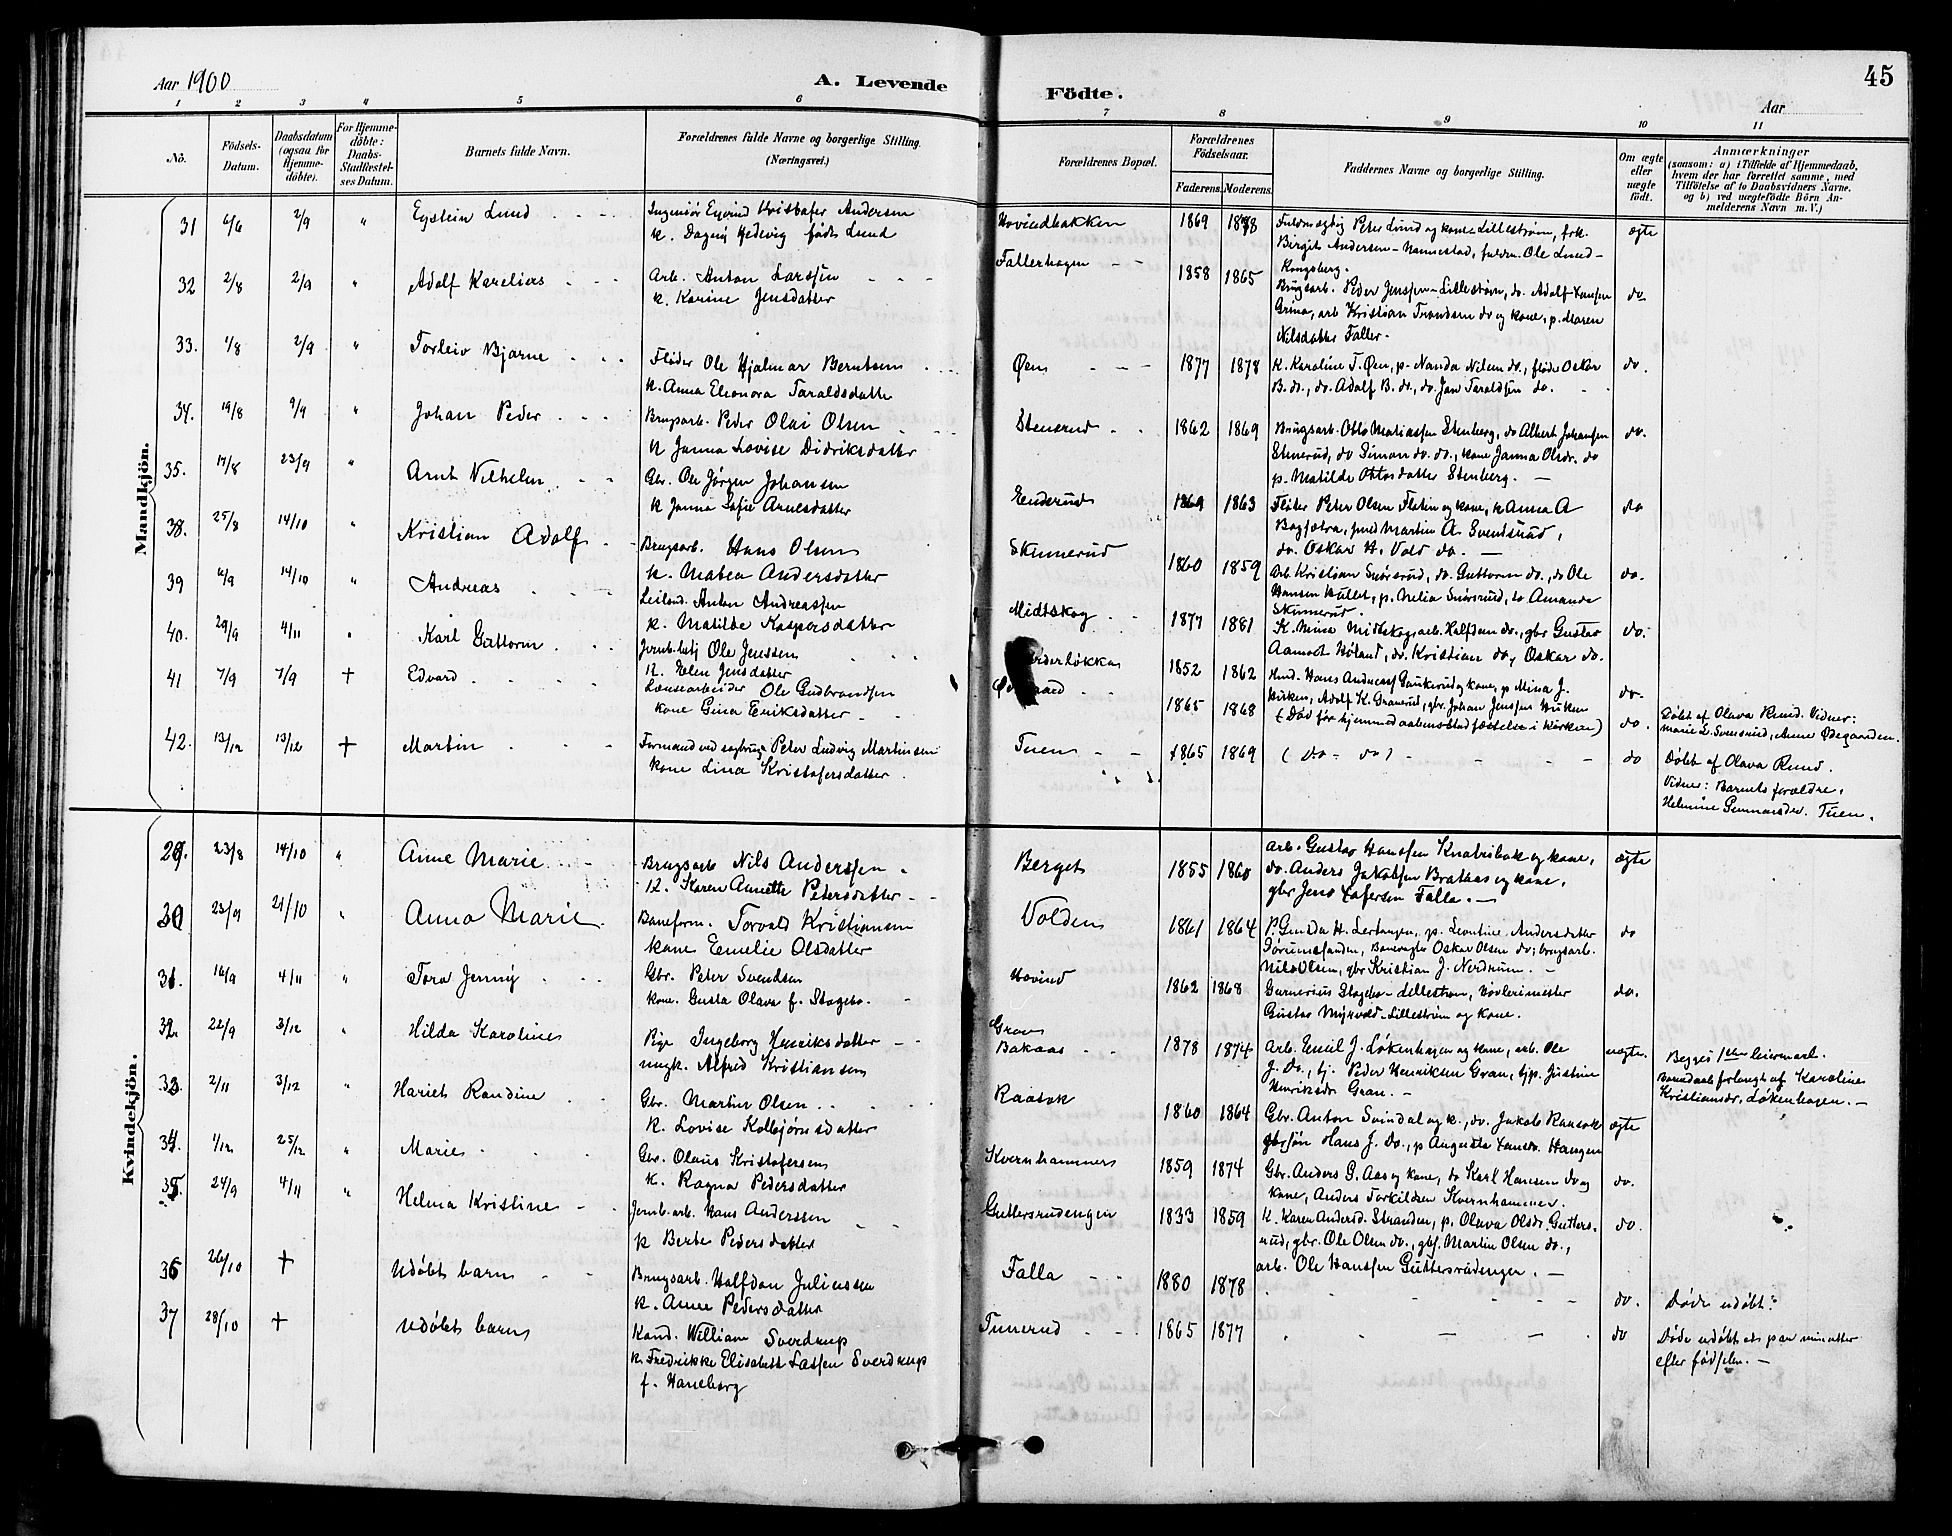 Aar 1900
A. Levende
Födte.
45
Aar
1 2 3 4 5 6 7 8 9 10 11
No.
Födsels-Datum.
Daabsdatum (ogsaa for Hjemmedöbte).
For Hjemmedöbte: Daabs-Stadfæstelses Datum.
Barnets fulde Navn.
Forældrenes fulde Navne og borgerlige Stilling.
(Næringsvei.)
Forældrenes Bopæl.
Forældrenes Födselsaar.
Faderens. Moderens.
Faddernes Navne og borgerlige Stilling.
Om ægte eller uægte födt.
Anmærkninger
(saasom: a) i Tilfælde af Hjemmedaab, hvem der har forrettet samme, med Tilföielse af to Daabsvidners Navne, og b) ved uægtefödte Börn Anmelderens Navn m. V.)
Mandkjön.
31 6/6 2/9 " Eystein Lund
Ingeniør Eyvind Kristofer Andersen
k. Dagny Hedevig født Lund
Hovindbakken 1869 1878
Fuldmægtig Peter Lund og kone - Lillestrøm, frk.
Birgit Andersen - Nannestad, Ole Lund -
Kongsberg.
ægte
32 2/8 2/9 " Adolf Karelius
Arb. Anton Larssen
k. Karine Jensdatter
Fallerhagen 1858 1865
Brugsarb. Peder Jenssen - Lillestrøm, do. Adolf
arb Kristian Trondsen do og kone, p. Maren
Nilsdatter Faller.
do.
33. 1/8 2/9 " Torleiv Bjarne
Fløder Ole Hjalmar Berntsen
k. Anna Eleonora Taraldsdatter
Øen 1877 1878
K. Karoline T. Øen, p. Nanda Nilsen do., fløder Oskar
B. do., do. Adolf B. do., do. Jan Taraldsen do.
do.
34. 19/8 9/9 " Johan Peder
Brugsarb. Peder Olai Olsen
k Janna Lovise Didriksdatter
Stenerud 1862 1869
Brugsarb. Otto Matiassen Stenberg, do Albert Johansen
Stenerud, do Simon do. do., kone Janna Olsdr. do
p. Matilde Ottosdatter Stenberg.
do.
35. 17/8 23/9 " Arnt Vilhelm
Gbr. Ole Jørgen Johansen
k Janna Sofie Arnesdatter
Enderud 1869 1863
Fløter Peter Olsen Flaten og kone, k Anna A
Martin A. Svendsrud,
do. Oskar H. Vold do.
do
38. 25/8 14/10 " Kristian Adolf
Brugsarb. Hans Olsen
k. Matea Andersdatter
Skinnerud 1860 1859
Arb. Kristian Snørsrud, do. Guttorm do., do Ole
Hansen Hullet, p. Nelia Snørsrud, do Amanda
Skinnerud.
do.
39 6/9 14/10 " Andreas
Leiland. Anton Andreassen
k. Matilde Kaspersdatter
Midtskog 1877 1881
K. Mina Midtskog, arb. Halfdan do., gbr Gustav
Aamodt Høland, do. Kristian do, Oskar do.
do.
40. 29/9 4/11 " Karl Guttorm
Jernb.betj Ole Jenssen
k. Elen Jensdatter
1852 1862
Hmd. Hans Andreass Gaukerud og kone, p Mina J.
Adolf K. Granerud, gbr Johan Jenssen
do.
41 7/9 7/9 + Edvard
Lænsearbeider Ole Gudbrandsen
kone Gina Eriksdatter
1865 1868
(Død før hjemmedaabens stadfæstelse i kirken)
do.
Døbt af Olava Rund. Vidner:
Marie L. Svensrud, Anne Ødegaarden.
42. 13/12 13/12 + Martin
Formand ved sagbrug Peter Ludvig Martinsen
kone Lina Kristofersdatter
Tuen 1865 1869
( do - do )
do
Døbt af Olava Rund.
Vidner: Barnets forældre,
Helmine Gunnarsdr. Tuen.
Kvindekjön.
29. 23/8 14/10 " Anne Marie
Brugsarb Nils Anderssen
k. Karen Annette Petersdatter
Berget 1855 1860
arb. Gustav Hanssen Knatribak og kone,
do. Anders Jakobsen Brathas og kone,
gbr Jens Falla.
ægte
30 23/9 21/10 " Anna Marie
Baneform. Torvald Kristiansen
kone Emelie Olsdatter
Volden 1861 1864
P. Gunda H. Lertangen, p. Leontine Andersdatter
Sørumsanden, Banevogter Oskar Olsen do, brugsarb.
Nils Olsen, gbr Kristian J. Nerdrum.
do
31. 16/9 4/11 " Tora Jenny
Gbr. Peter Svendsen
kone. Gusta Olava f. Stagebo.
Hovind 1862 1868
Gunerius Stagebo - Lillestrøm, Høvlerimester
Gustav Myrvold - Lillestrøm og kone.
do.
32. 22/9 3/12 " Hilda Karoline
Pige Ingeborg Henriksdatter
ungk. Alfred Kristiansen
Gran
Bakaas 1878 1874
Arb. Emil J. Løkenhagen og kone, arb. Ole
J. do., tj. Peder Henriksen Gran, tjp. Justine
Henriksdr Gran.
uægte.
Begges 1ste leiermaal.
Barnedaab forlangt af Karoline
Kristiansdr. Løkenhagen.
33 2/11 3/12 " Hariet Randine
Gbr. Martin Olsen
k. Lovise Kolbjørnsdatter
Raasok 1860 1864
Gbr. Anton Svindal og k., do. Jakob Raasok
gbrsøn Hans J. do., p Augusta Haugen
ægte
34. 1/12 25/12 " Marie
Gbr. Olaus Kristofersen
k. Ragna Pedersdatter
Kvernhammer 1859 1874
Gbr. Anders G. Aas og kone, do Karl Hansen do og
kone, Anders Torkildsen Kvernhammer.
do.
35. 24/9 4/11 " Helma Kristine
Jernb.arb. Hans Anderssen
k Berte Pedersdatter
Guttersrudengen 1833 1859
K. Karen Andersd. Stranden, p. Olava Olsdr. Gutters-
rud, gbr. Ole Olsen do., gbs. Martin Olsen do.,
arb. Ole Hanssen Guttersrudengen.
do.
36 26/10 + Udøbt barn
Brugsarb. Halfdan Juliussen
k. Anne Pedersdatter
Falla 1880 1878
do.
Døde udøbt.
37 28/10 + Udøbt barn
Kand. William Sverdrup
k. Fredrikke Elisabeth Lassen Sverdrup
f. Haneborg
Tunerud 1865 1877
do
Døde udøbt et par minutter
efter fødselen.